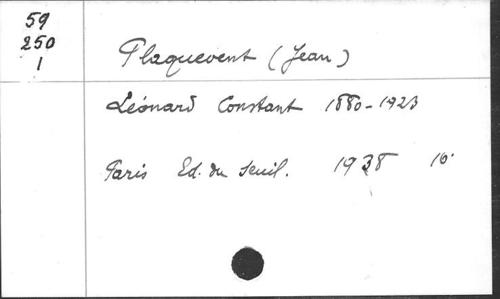 59
250
1
Plaquevent (Jean)
Léonard Constant 1880-1923
Paris Ed. du Seuil. 1938 16°